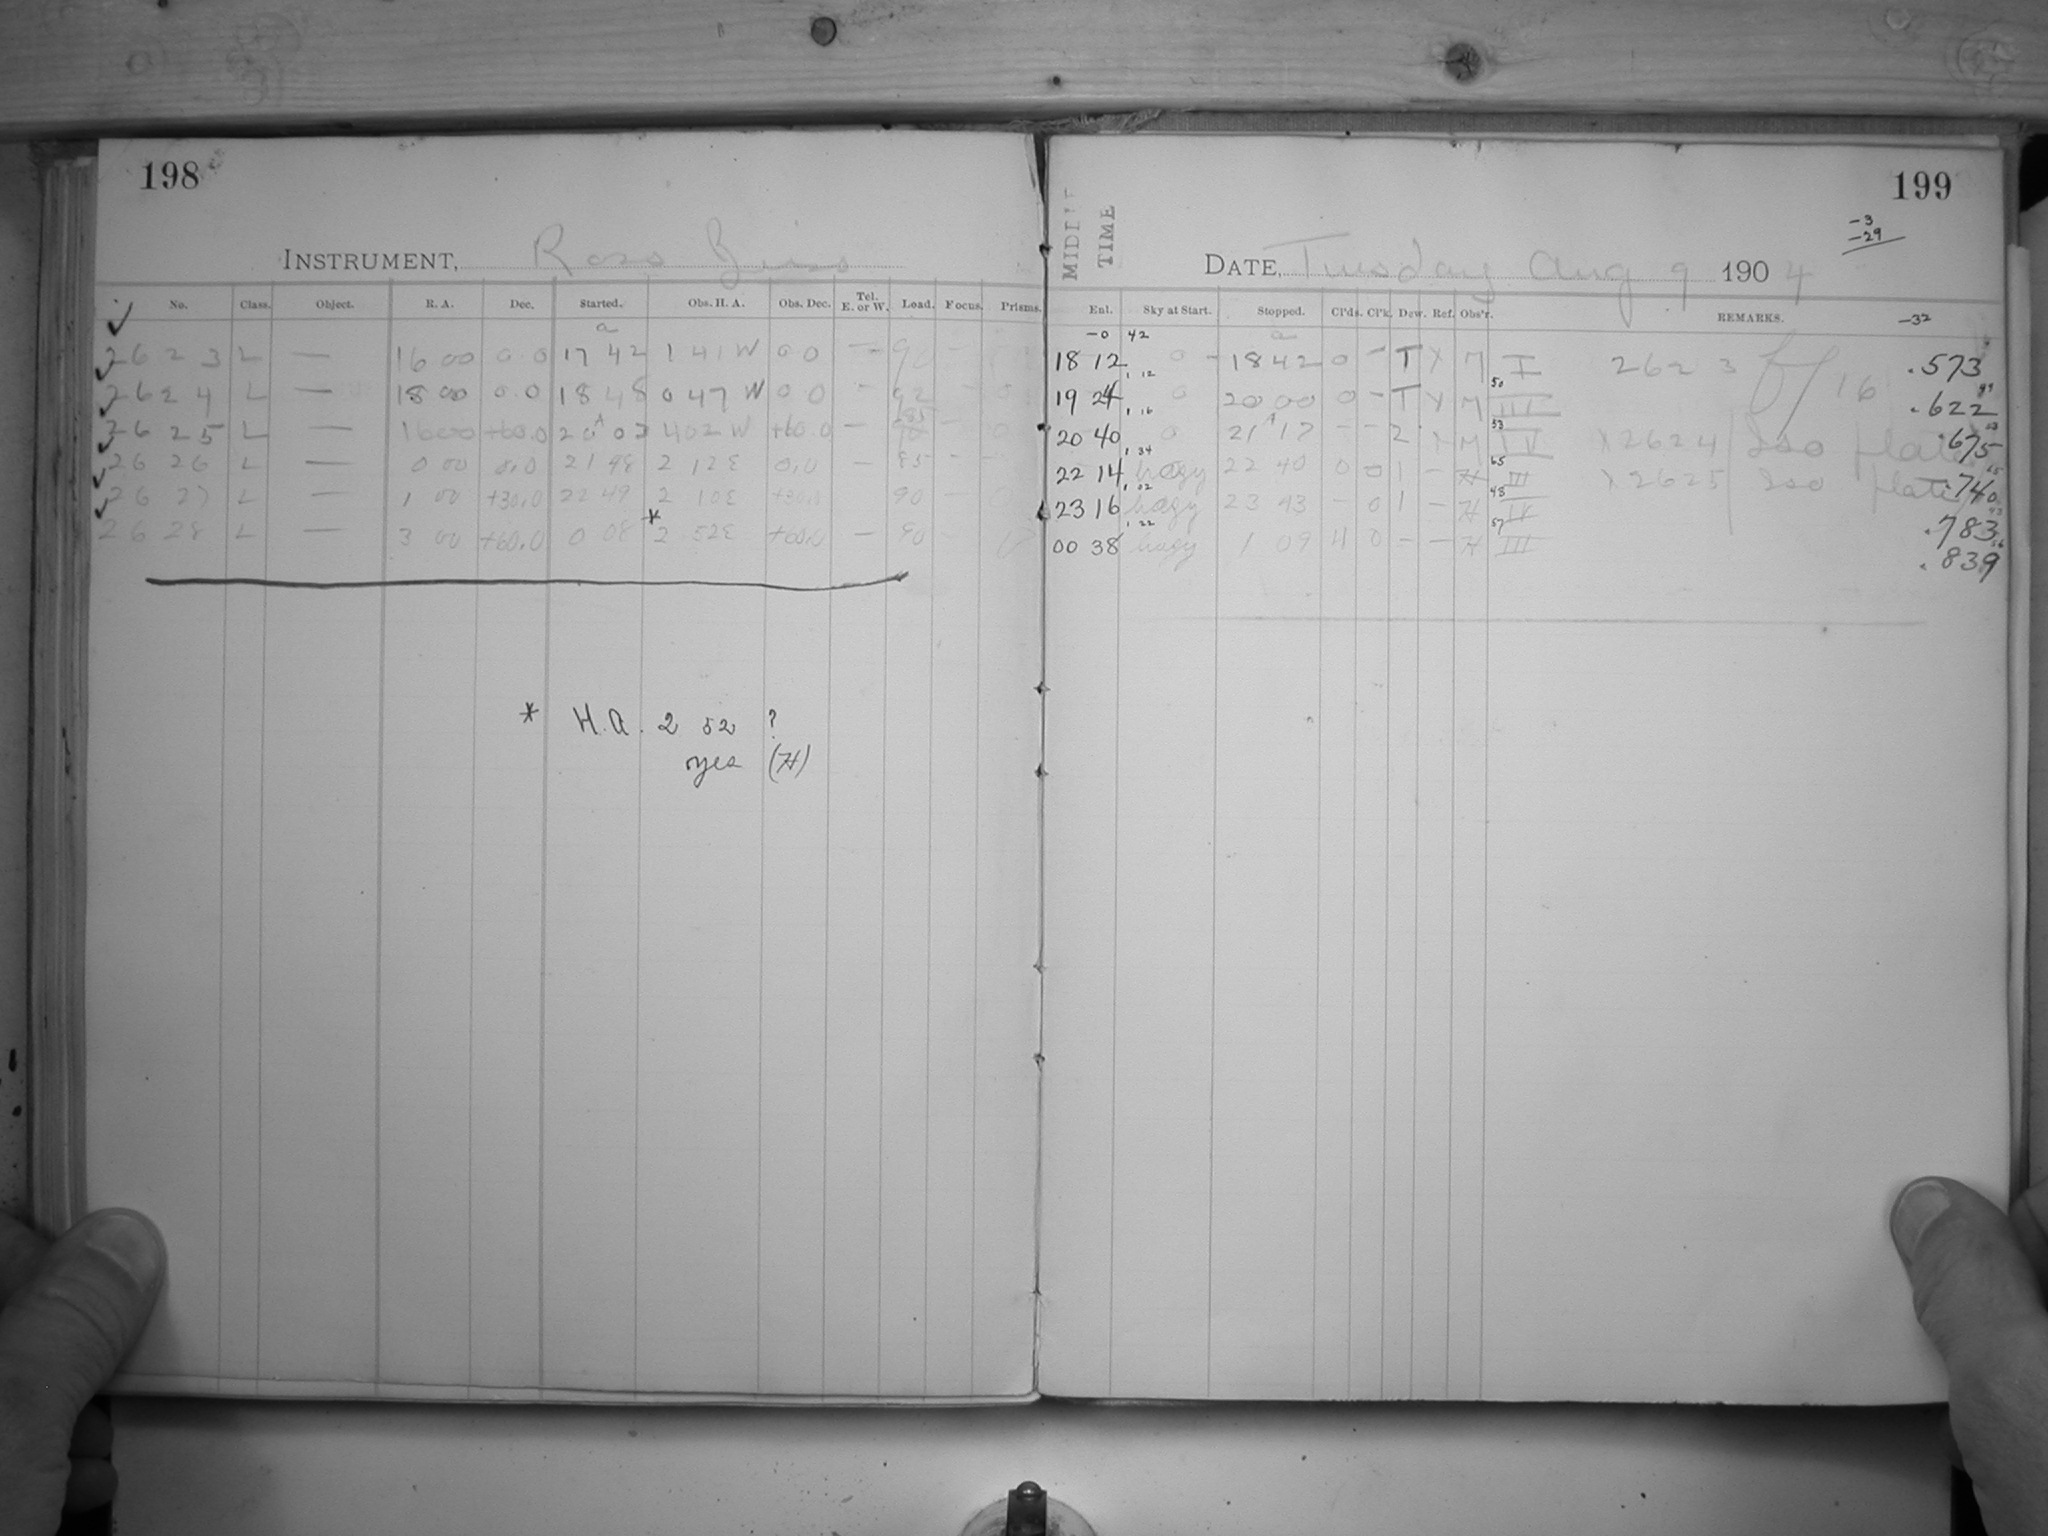 198
INSTRUMENT, Ross
No. Class. Object. R. A. Dec. Started. Obs. H. A. Obs. Dec. Tel. E. or W. Load. Focus. Prisms.
2623 L — 16 00 0.0 17 42 1 41 W 0 0 — 90
2624 L — 18 00 0.0 18 48 0 47 W 0 0 — 92
2625 L — 16 00 +60.0 20 03 4 02 W +60.0 —
2626 L — 0 00 0.0 21 48 2 12 E 0.0 — 85
2627 L — 1 00 +30.0 22 49 2 10 E +30.0 90
*
2628 L — 3 00 +60.0 0 08 2 52 E +60.0 — 90
* H.A. 2 52 ?
yes (H)
199
-3
-29
MIDDLE TIME
DATE, Tuesday Aug 9 1904
Enl. Sky at Start. Stopped. Cl'ds. Cl'k. Dew. Ref. Obs'r. REMARKS. -32
-0 42
18 12 0 18 42 0 - T Y M I 2623 f/16 .573
1 12 50 49
19 24 0 20 00 0 - T Y M III .622
1 16 53 53
20 40 0 21 17 - - 2 Y M IV X 2624 Iso plate .675
1 34 65 65
22 14 hazy 22 40 0 0 1 - H III X 2625 Iso plate .740
1 02 48 43
23 16 hazy 23 43 - 0 1 - H IV .783
1 22 57 56
00 38 hazy 1 09 4 0 - - H III .839